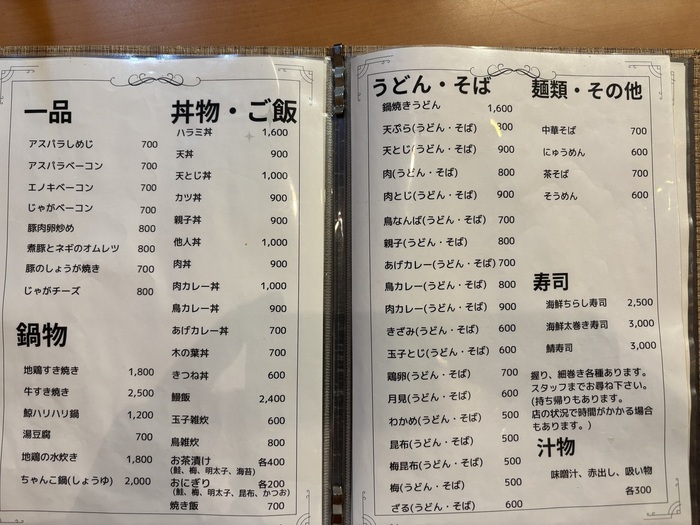 一品
アスパラしめじ 700
アスパラベーコン 700
エノキベーコン 700
じゃがベーコン 700
豚肉卵炒め 800
煮豚とネギのオムレツ 800
豚のしょうが焼き 700
じゃがチーズ 800
鍋物
地鶏すき焼き 1,800
牛すき焼き 2,500
鯨ハリハリ鍋 1,200
湯豆腐 700
地鶏の水炊き 1,800
ちゃんこ鍋(しょうゆ) 2,000
丼物・ご飯
ハラミ丼 1,600
天丼 900
天とじ丼 1,000
カツ丼 900
親子丼 900
他人丼 1,000
肉丼 900
肉カレー丼 1,000
鳥カレー丼 900
あげカレー丼 700
木の葉丼 700
きつね丼 600
鰻飯 2,400
玉子雑炊 600
鳥雑炊 800
お茶漬け 各400
(鮭、梅、明太子、海苔)
おにぎり 各200
(鮭、梅、明太子、昆布、かつお)
焼き飯 700
うどん・そば
鍋焼きうどん 1,600
天ぷら(うどん・そば) 800
天とじ(うどん・そば) 900
肉(うどん・そば) 800
肉とじ(うどん・そば) 900
鳥なんば(うどん・そば) 700
親子(うどん・そば) 800
あげカレー(うどん・そば) 700
鳥カレー(うどん・そば) 800
肉カレー(うどん・そば) 900
きざみ(うどん・そば) 600
玉子とじ(うどん・そば) 600
鶏卵(うどん・そば) 700
月見(うどん・そば) 600
わかめ(うどん・そば) 500
昆布(うどん・そば) 500
梅昆布(うどん・そば) 500
梅(うどん・そば) 500
ざる(うどん・そば) 600
麺類・その他
中華そば 700
にゅうめん 600
茶そば 700
そうめん 600
寿司
海鮮ちらし寿司 2,500
海鮮太巻き寿司 3,000
鯖寿司 3,000
握り、細巻き各種あります。
スタッフまでお尋ね下さい。
(持ち帰りもあります。
店の状況で時間がかかる場合
もあります。)
汁物
味噌汁、赤出し、吸い物
各300